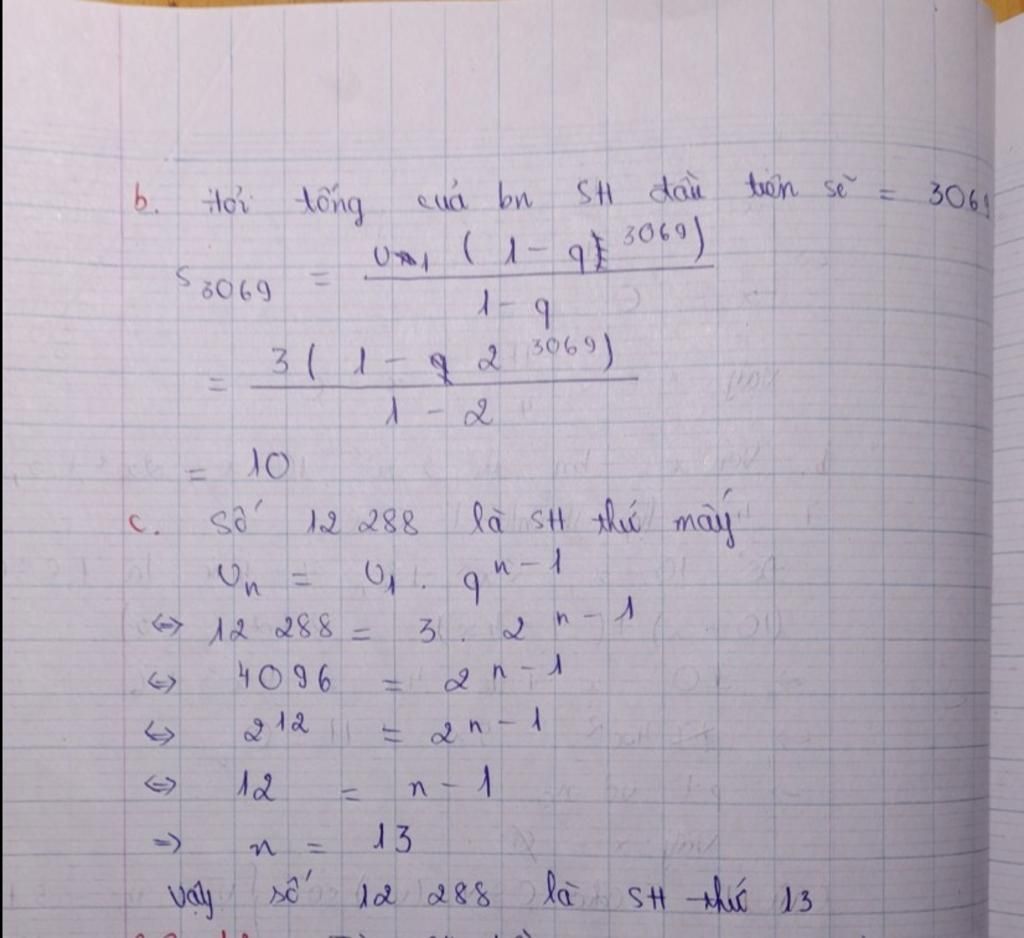 b. Hỏi tổng cuả bn SH đầu tiên sẽ = 3069
S₃₀₆₉ = U₁ ( 1 - q³⁰⁶⁹) / 1 - q
= 3 ( 1 - 2³⁰⁶⁹) / 1 - 2
= 10
c. Số 12 288 là SH thứ mấy
Uₙ = U₁ . qⁿ⁻¹
⇔ 12 288 = 3 . 2ⁿ⁻¹
⇔ 4096 = 2ⁿ⁻¹
⇔ 2¹² = 2ⁿ⁻¹
⇔ 12 = n - 1
⇒ n = 13
Vậy số 12 288 là SH thứ 13